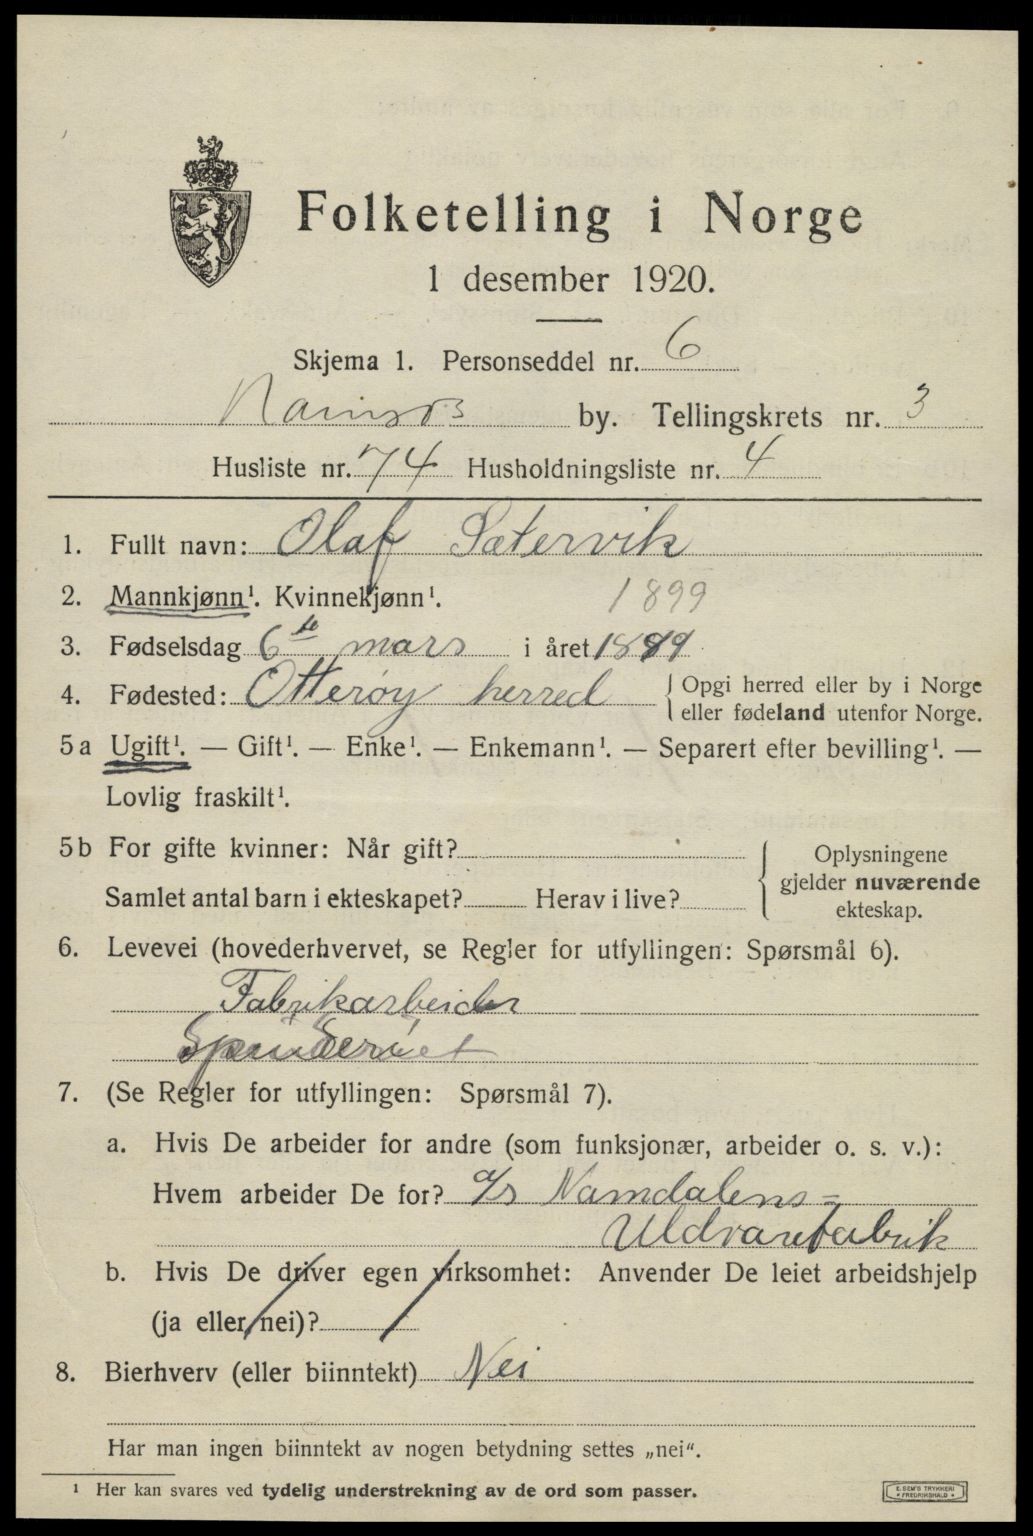 Folketelling i Norge
1 desember 1920.
Skjema 1. Personseddel nr. 6
Namsos by. Tellingskrets nr. 3
Husliste nr. 74 Husholdningsliste nr. 4
1. Fullt navn: Olaf Sætervik
2. Mannkjønn¹. Kvinnekjønn¹. 1899
3. Fødselsdag 6te mars i året 1899
4. Fødested: Otterøy herred { Opgi herred eller by i Norge
eller fødeland utenfor Norge.
5 a Ugift¹. — Gift¹. — Enke¹. — Enkemann¹. — Separert efter bevilling¹. —
Lovlig fraskilt¹.
5 b For gifte kvinner: Når gift? { Oplysningene
gjelder nuværende
Samlet antal barn i ekteskapet? Herav i live? ekteskap.
6. Levevei (hovederhvervet, se Regler for utfyllingen: Spørsmål 6).
Fabrikarbeider
7. (Se Regler for utfyllingen: Spørsmål 7).
a. Hvis De arbeider for andre (som funksjonær, arbeider o. s. v.):
Hvem arbeider De for? a/s Namdalens=
Uldvarefabrik
b. Hvis De driver egen virksomhet: Anvender De leiet arbeidshjelp
(ja eller nei)?
8. Bierhverv (eller biinntekt) Nei
Har man ingen biinntekt av nogen betydning settes „nei“.
¹ Her kan svares ved tydelig understrekning av de ord som passer.
E. SEM'S TRYKKERI
• FREDRIKSHALD •